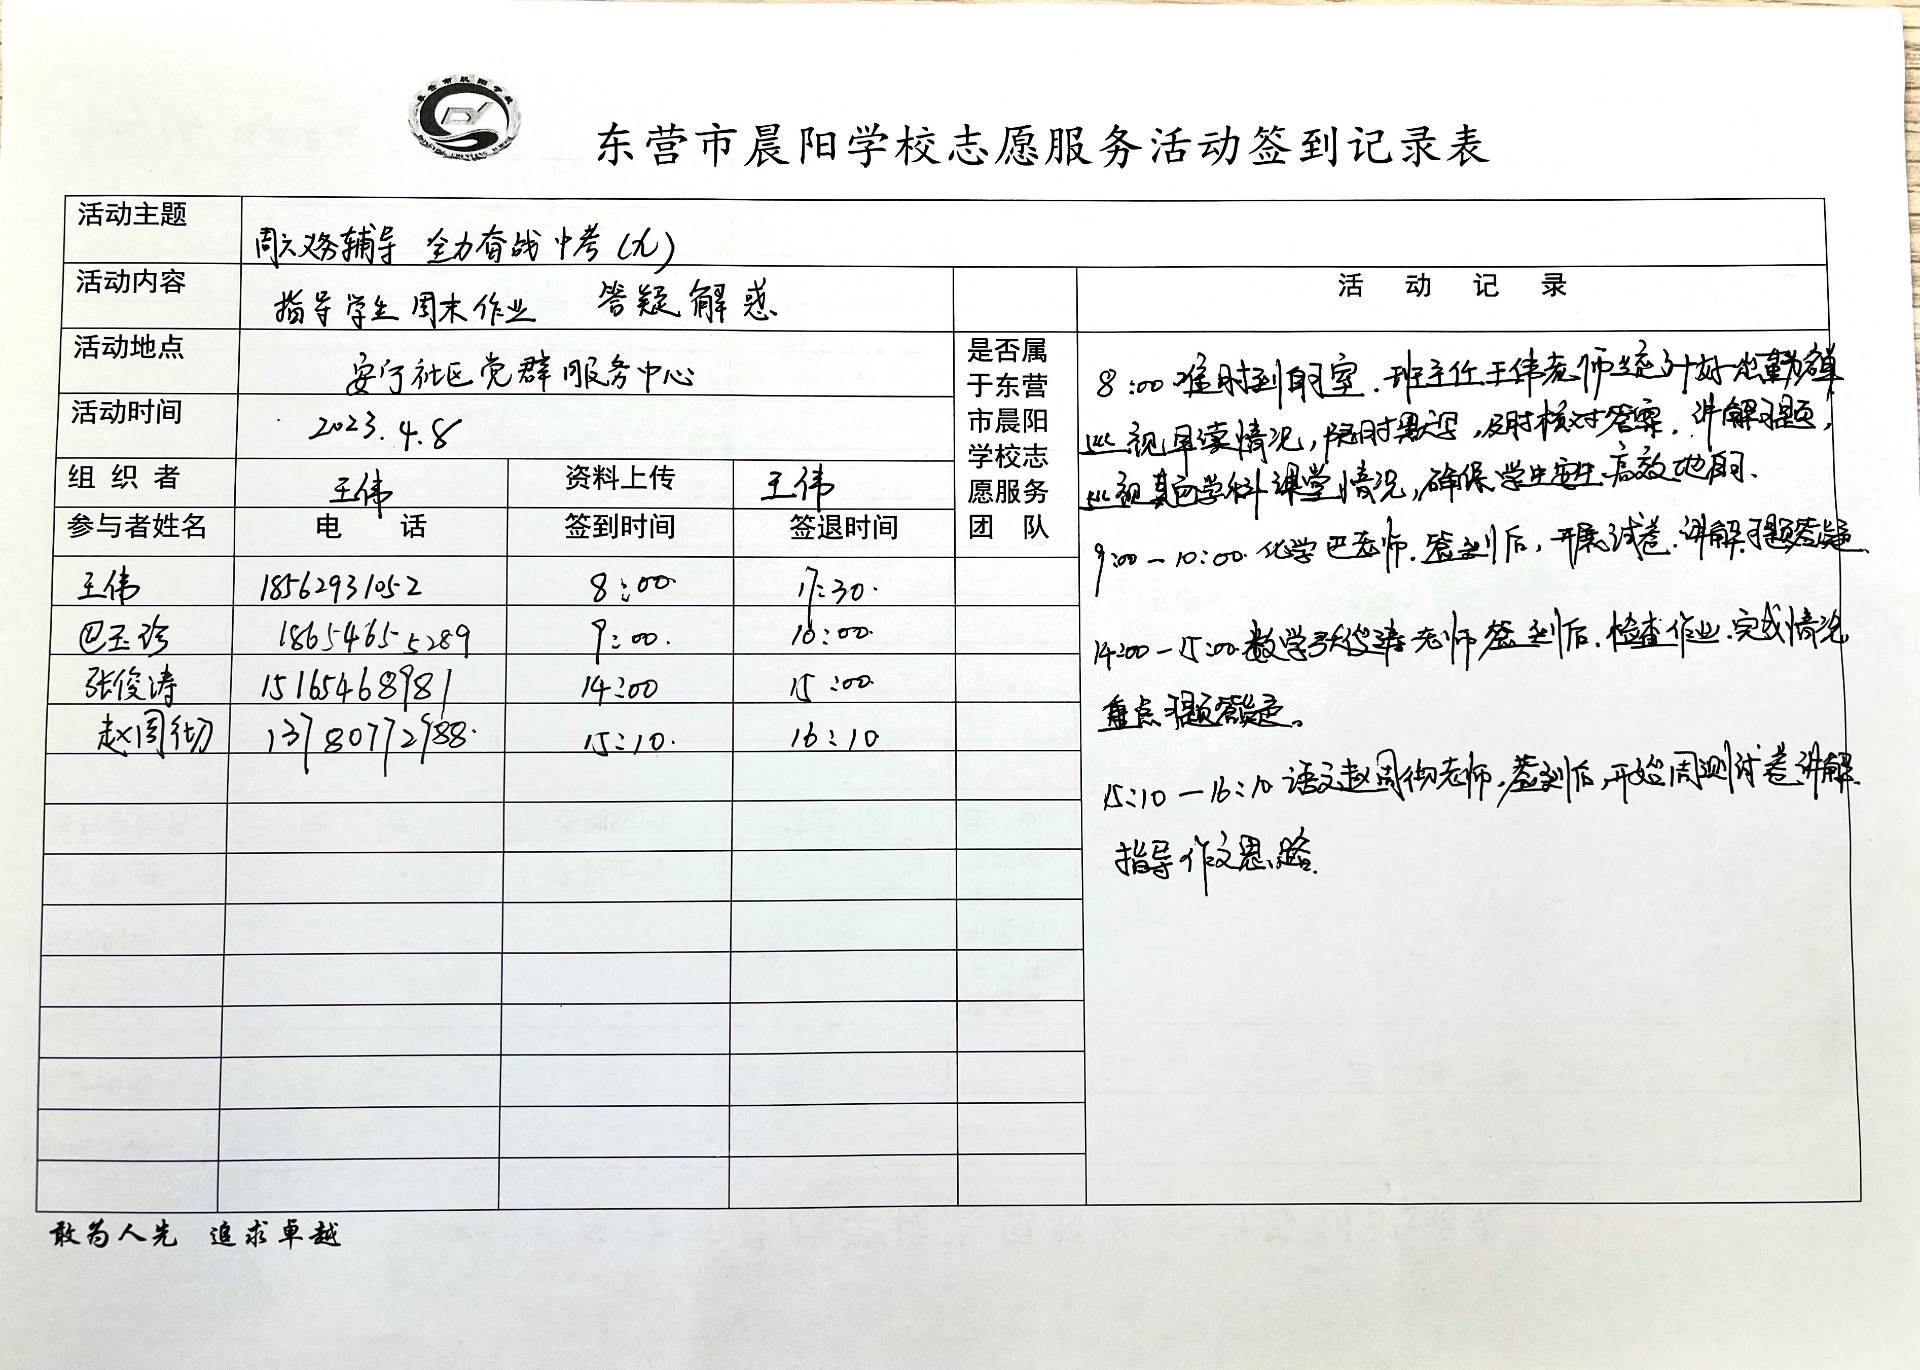 东营市晨阳学校志愿服务活动签到记录表
活动主题 周六义务辅导 全力奋战中考(九)
活动内容 指导学生周末作业 答疑解惑 活 动 记 录
活动地点 安宁社区党群服务中心
活动时间 2023.4.8
组 织 者 王伟 资料上传 王伟
参与者姓名 电 话 签到时间 签退时间
是否属
于东营
市晨阳
学校志
愿服务
团 队
王伟 18562931052 8:00 17:30
巴玉珍 18654655289 9:00 10:00
张俊涛 15165468981 14:00 15:00
赵周彻 13780772988 15:10 16:10
8:00 准时到自习室.班主任王伟老师统计好出勤名单
巡视早读情况,限时默写,及时核对答案.讲解习题,
巡视其它学科课堂情况,确保学生安全高效地自习.
9:00—10:00 化学巴老师.签到后,开展试卷.讲解习题答疑.
14:00—15:00 数学张俊涛老师签到后.检查作业.完成情况
重点习题答疑。
15:10—16:10 语文赵周彻老师,签到后,开始周测试卷讲解.
指导作文思路.
敢为人先 追求卓越